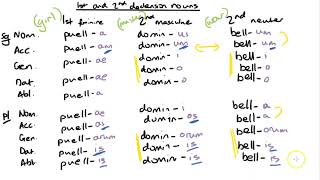 1st and 2nd declension nouns
(girl) (master) (war)
1st feminine 2nd masculine 2nd neuter
Sg Nom. puell-a domin-us bell-um
Acc. puell-am domin-um bell-um
Gen. puell-ae domin-i bell-i
Dat. puell-ae domin-o bell-o
Abl. puell-a domin-o bell-o
Pl Nom. puell-ae domin-i bell-a
Acc. puell-as domin-os bell-a
Gen. puell-arum domin-orum bell-orum
Dat puell-is domin-is bell-is
Abl puell-is domin-is bell-is